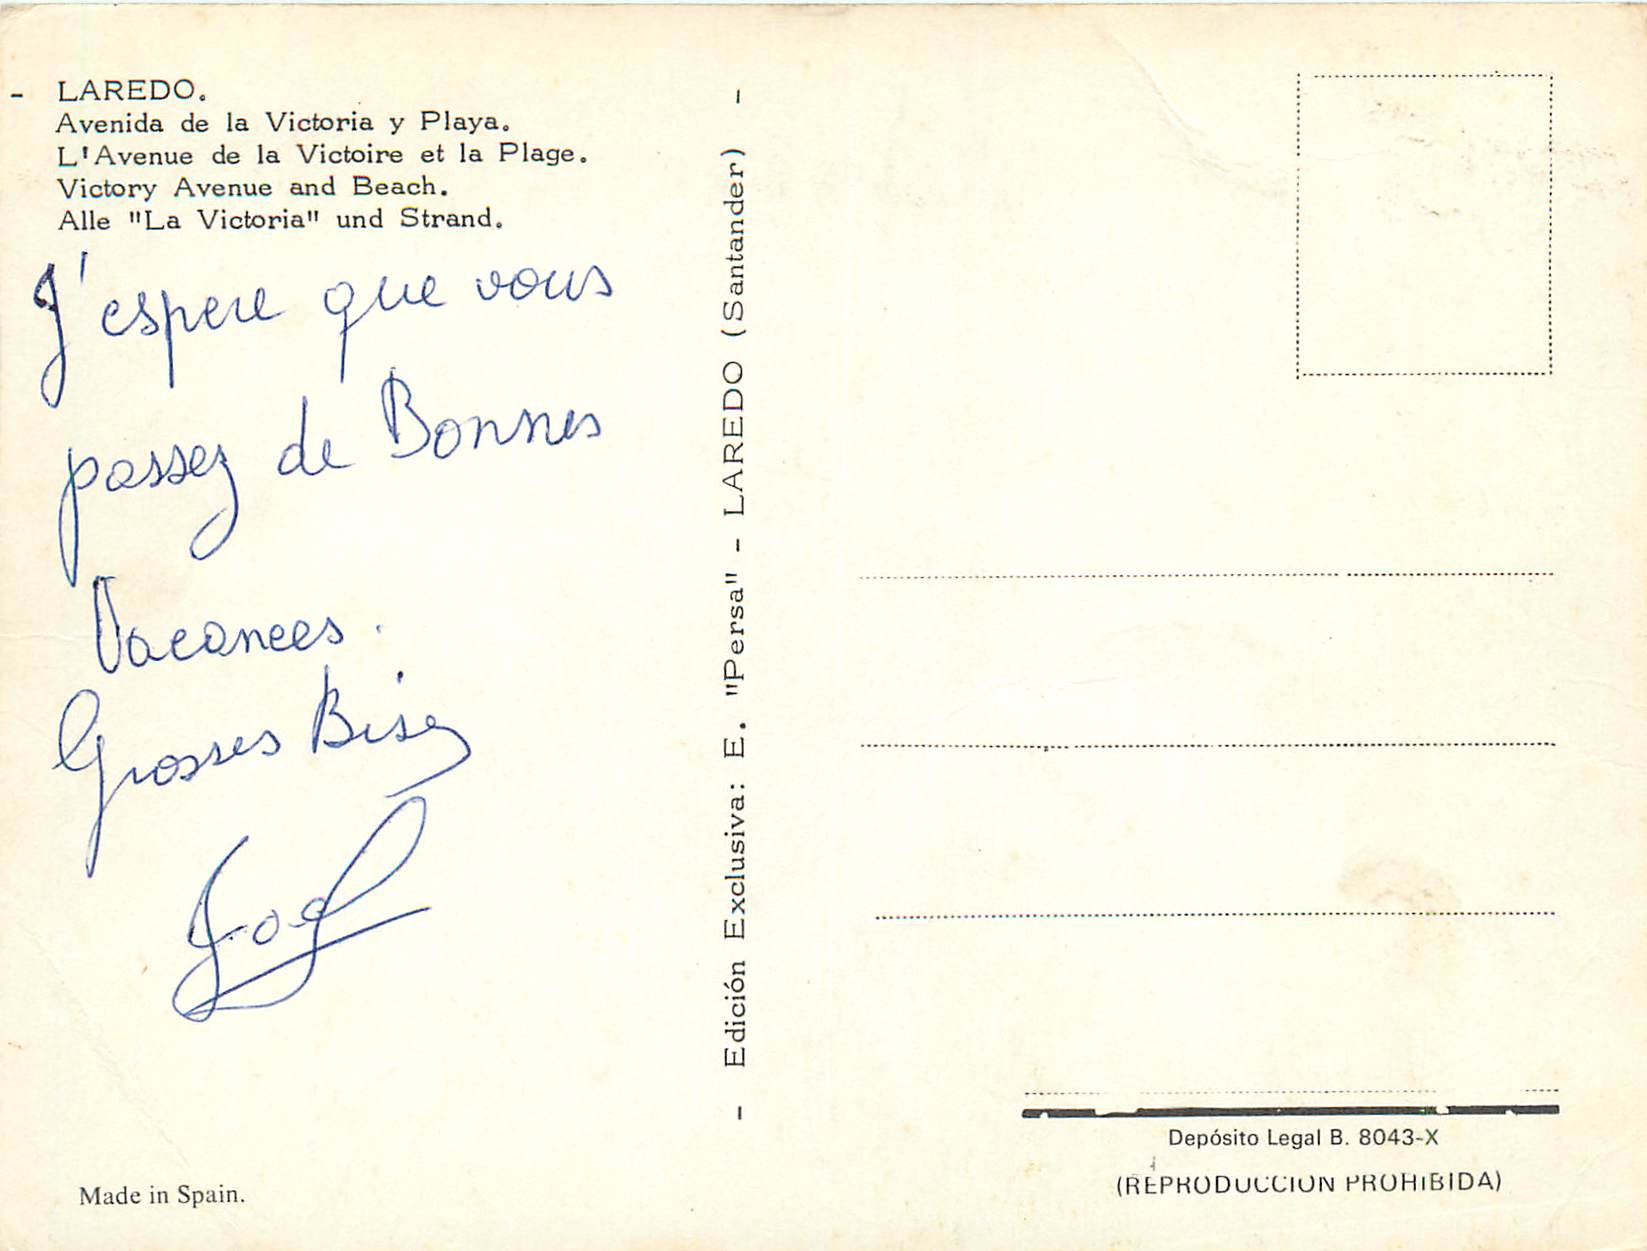 - LAREDO.
Avenida de la Victoria y Playa.
L'Avenue de la Victoire et la Plage.
Victory Avenue and Beach.
Alle "La Victoria" und Strand.
J'espere que vous
passez de Bonnes
Vacances.
Grosses Bises
Joel
Made in Spain.
- Edición Exclusiva: E. "Persa" - LAREDO (Santander) -
Depósito Legal B. 8043-X
(REPRODUCCION PROHIBIDA)